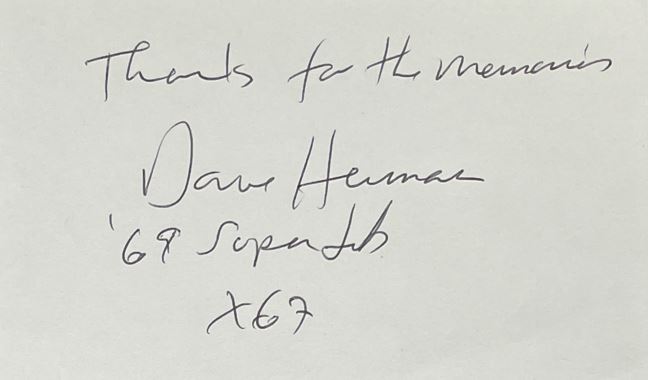 Thanks for the Memories
Dave Herman
'69 Super Jets
#67